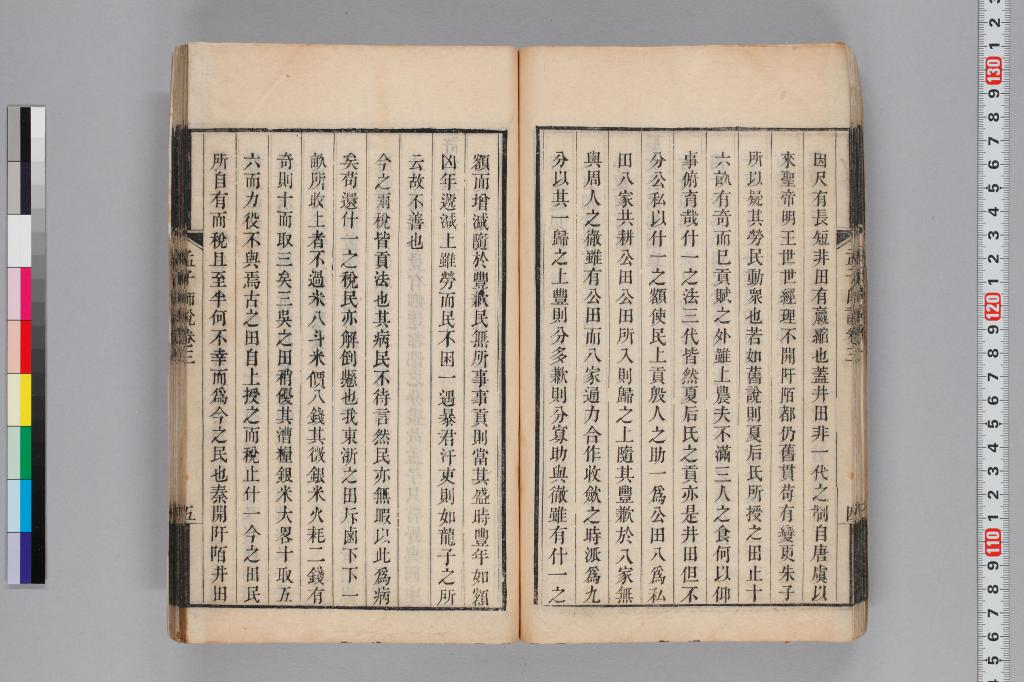 因尺有長短非田有贏縮也蓋井田非一代之制自唐虞以
來聖帝明王世世經理不開阡陌都仍舊貫苟有變更朱子
所以疑其勞民動衆也若如舊說則夏后氏所授之田止十
六畝有奇而已貢賦之外雖上農夫不滿三人之食何以仰
事俯育哉什一之法三代皆然夏后氏之貢亦是井田但不
分公私以什一之額使民上貢殷人之助一爲公田八爲私
田八家共耕公田公田所入則歸之上隨其豐歉於八家無
與周人之徹雖有公田而八家通力合作收斂之時派爲九
分以其一歸之上豐則分多歉則分寡助與徹雖有什一之
孟子師說卷三
四
額而增減隨於豐歉民無所事事貢則當其盛時豐年如額
凶年遞減上雖勞而民不困一遇暴君汙吏則如龍子之所
云故不善也
今之兩稅皆貢法也其病民不待言然民亦無暇以此爲病
矣苟還什一之稅民亦解倒懸也我東浙之田斥鹵下下一
畝所收上者不過米八斗米價八錢其徵銀米火耗二錢有
奇則十而取三矣三吳之田稍優其漕糧銀米大畧十取五
六而力役不與焉古之田自上授之而稅止什一今之田民
所自有而稅且至半何不幸而爲今之民也秦開阡陌井田
孟子師說卷三
五